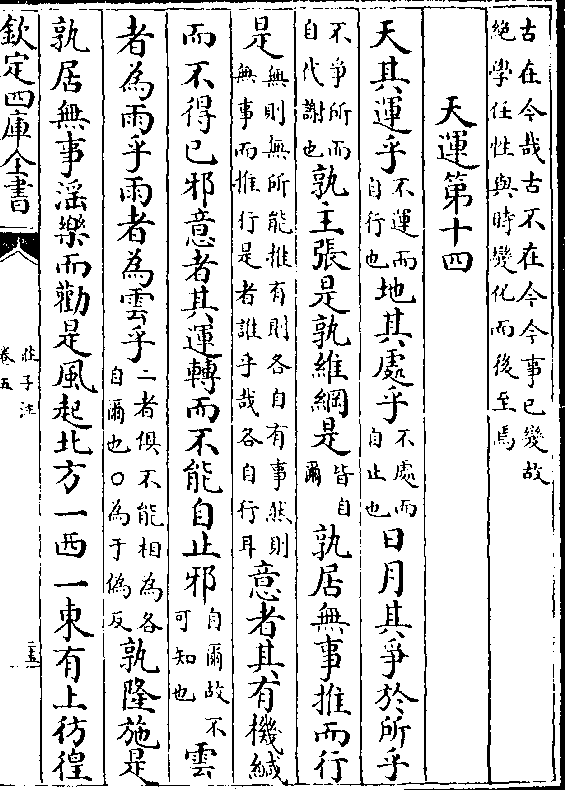 古在今哉古不在今今事已變故
絶學任性與時變化而後至焉
天運第十四
天其運乎不運而自行也地其處乎不處而自止也日月其爭於所乎
不爭所而自代謝也孰主張是孰維綱是皆自爾孰居無事推而行
是無則無所能推有則各自有事然則無事而推行是者誰乎哉各自行耳意者其有機緘
而不得已邪意者其運轉而不能自止邪自爾故不可知也雲
者為雨乎雨者為雲乎二者俱不能相為各自爾也○為于偽反孰隆施是
孰居無事淫樂而勸是風起北方一西一東有上彷徨
欽定四庫全書
莊子注
卷五